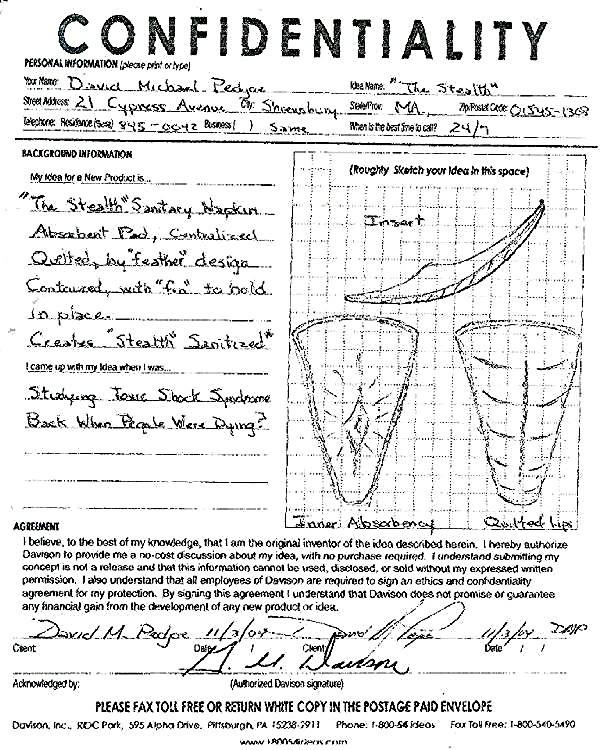 CONFIDENTIALITY
PERSONAL INFORMATION (please print or type)
Your Name: David Michael Idea Name: "The Stealth"
Street Address: 21 Cypress Avenue City: Shrewsbury State/Prov: MA, Zip/Postal Code: 01545-1368
Telephone: Residence 845-0042 Business ( ) Same When is the best time to call? 24/7
BACKGROUND INFORMATION
(Roughly Sketch your idea in this space)
My Idea for a New Product is...
"The Stealth" Sanitary Napkin
Absorbent Pad, Centralized
Quilted, by "feather" design
Contoured, with "fin" to hold
in place.
Creates "Stealth" Sanitized"
I came up with my idea when I was...
Studying Toxic Shock Syndrome
Back When People Were Dying?
Insert
Inner Absorbency
Quilted lips
AGREEMENT
I believe, to the best of my knowledge, that I am the original inventor of the idea described herein. I hereby authorize
Davison to provide me a no-cost discussion about my idea, with no purchase required. I understand submitting my
concept is not a release and that this information cannot be used, disclosed, or sold without my expressed written
permission. I also understand that all employees of Davison are required to sign an ethics and confidentiality
agreement for my protection. By signing this agreement I understand that Davison does not promise or guarantee
any financial gain from the development of any new product or idea.
David M. 11/3/04 David M. 11/3/04
Client Date / / Client Date / /
Davison
Acknowledged by: (Authorized Davison signature)
PLEASE FAX TOLL FREE OR RETURN WHITE COPY IN THE POSTAGE PAID ENVELOPE
Davison, Inc., RIDC Park, 595 Alpha Drive, Pittsburgh, PA 15238-2911 Phone: 1-800-54 ideas Fax Toll Free: 1-800-540-5490
www.180054ideas.com